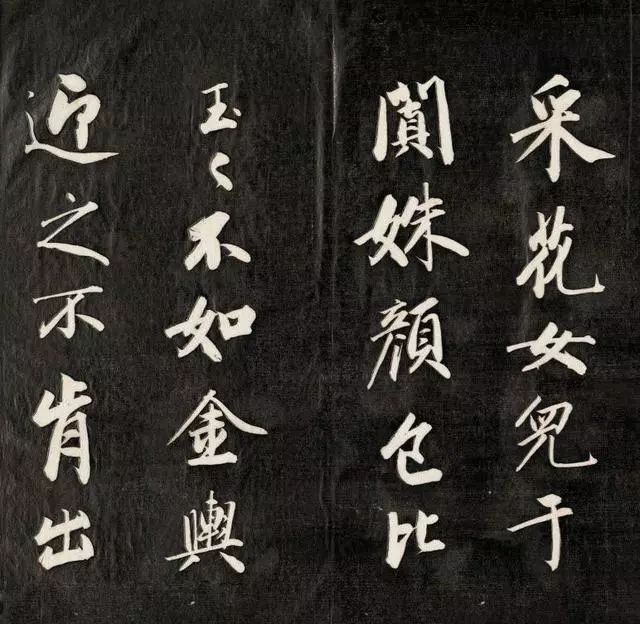 采花女兒于
闐姝顏色比
玉々不如金輿
迎之不肯出